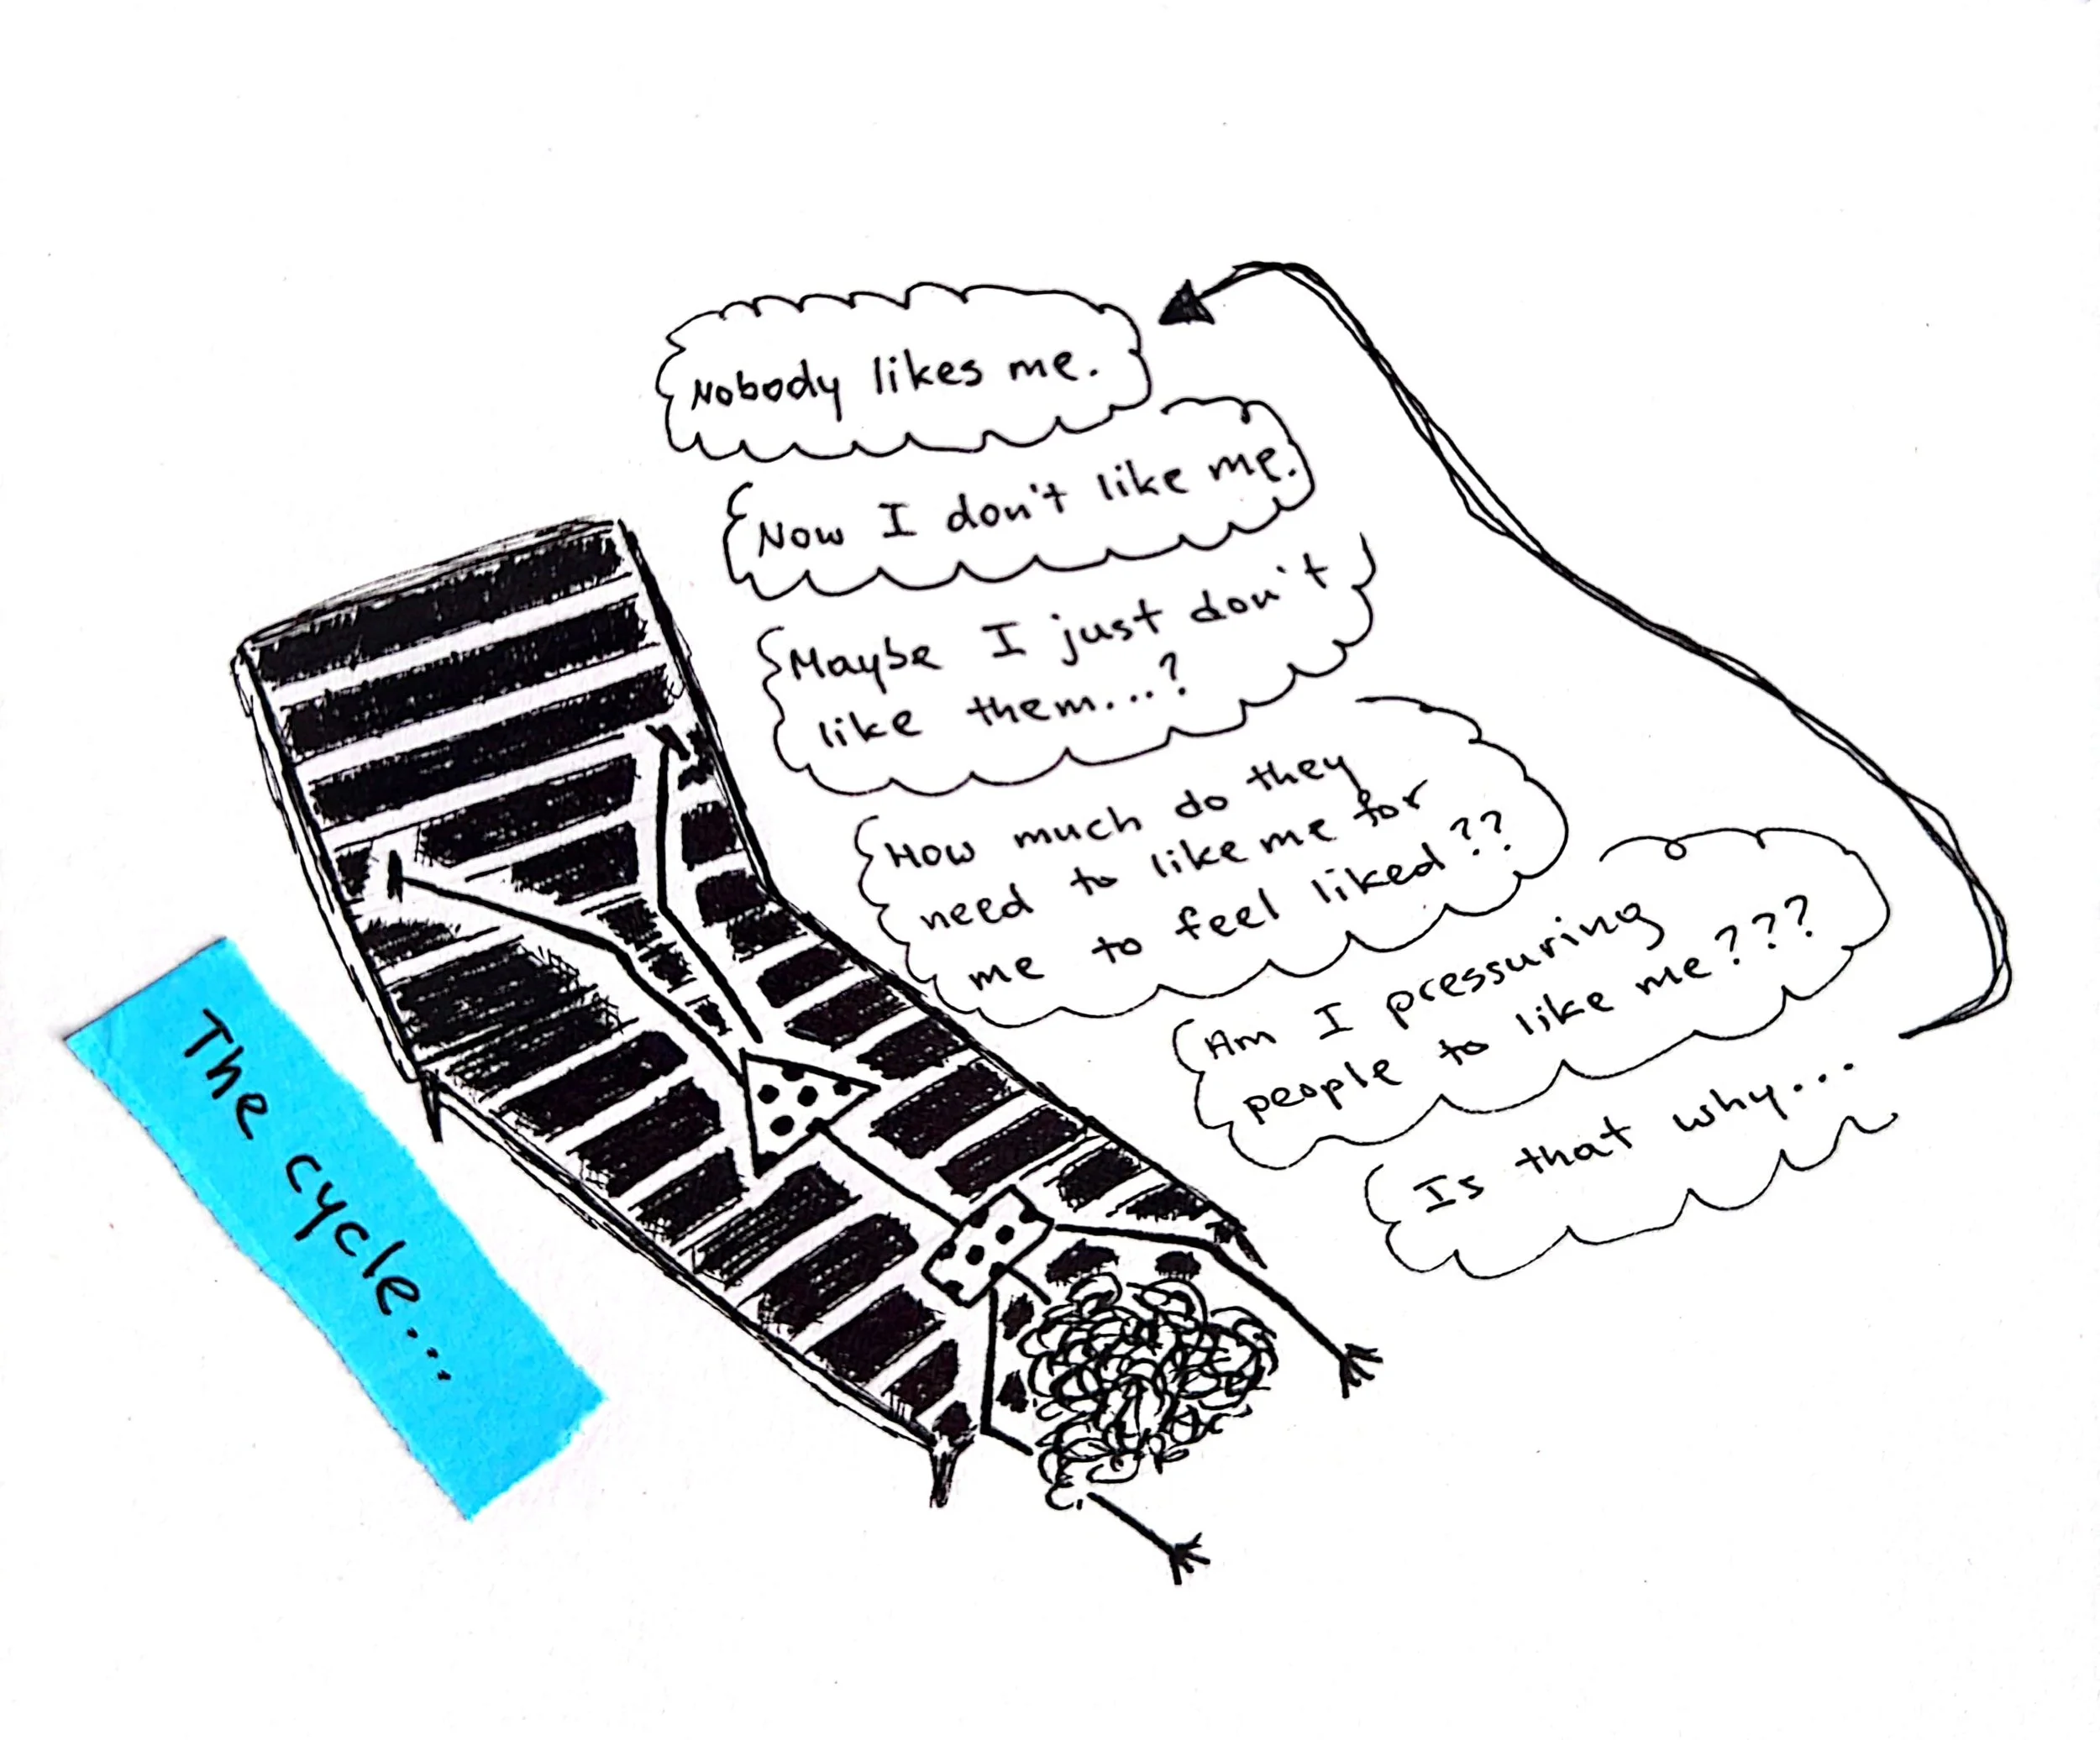 Nobody likes me.
Now I don't like me.
Maybe I just don't
like them...?
How much do they
need to like me for
me to feel liked??
Am I pressuring
people to like me???
Is that why...
The cycle...